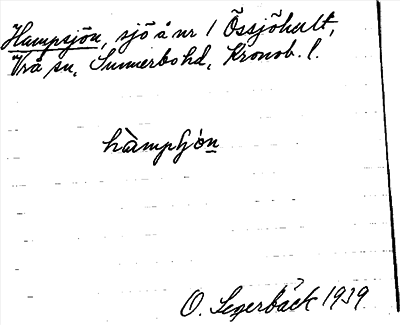 Hampsjön, sjö å nr 1 Össjöhult,
Vrå sn, Sunnerbo hd, Kronob. l.
hàmpʃo̤n
O. Segerbäck 1939